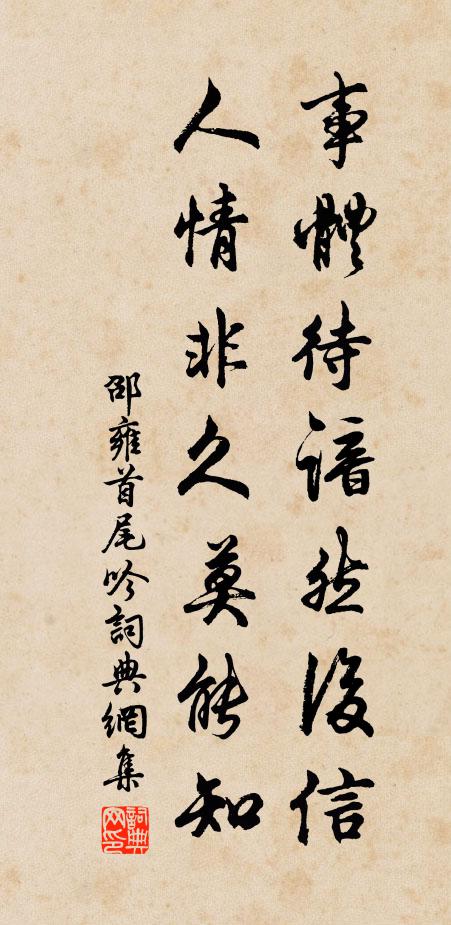 事體待諳然後信
人情非久莫能知
邵雍首尾吟詞典網集
詞典網印